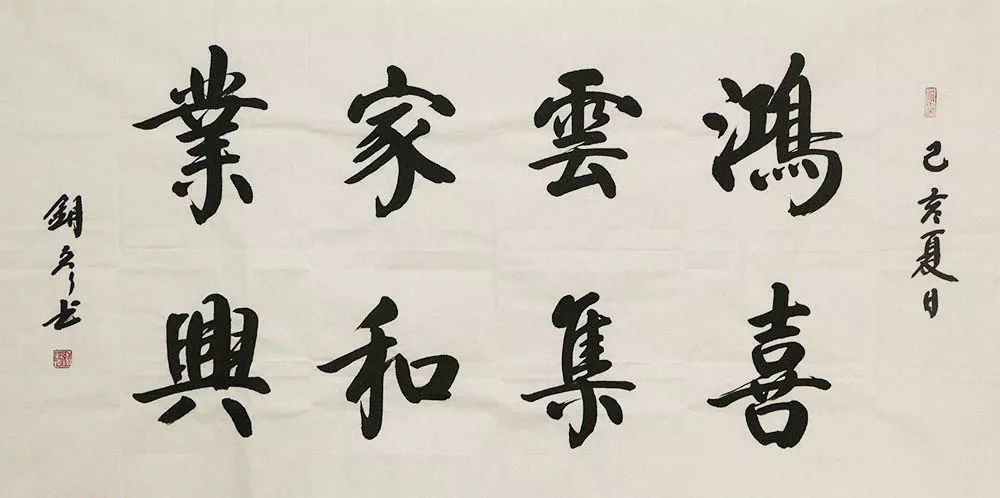 己亥夏日
鴻喜
雲集
家和
業興